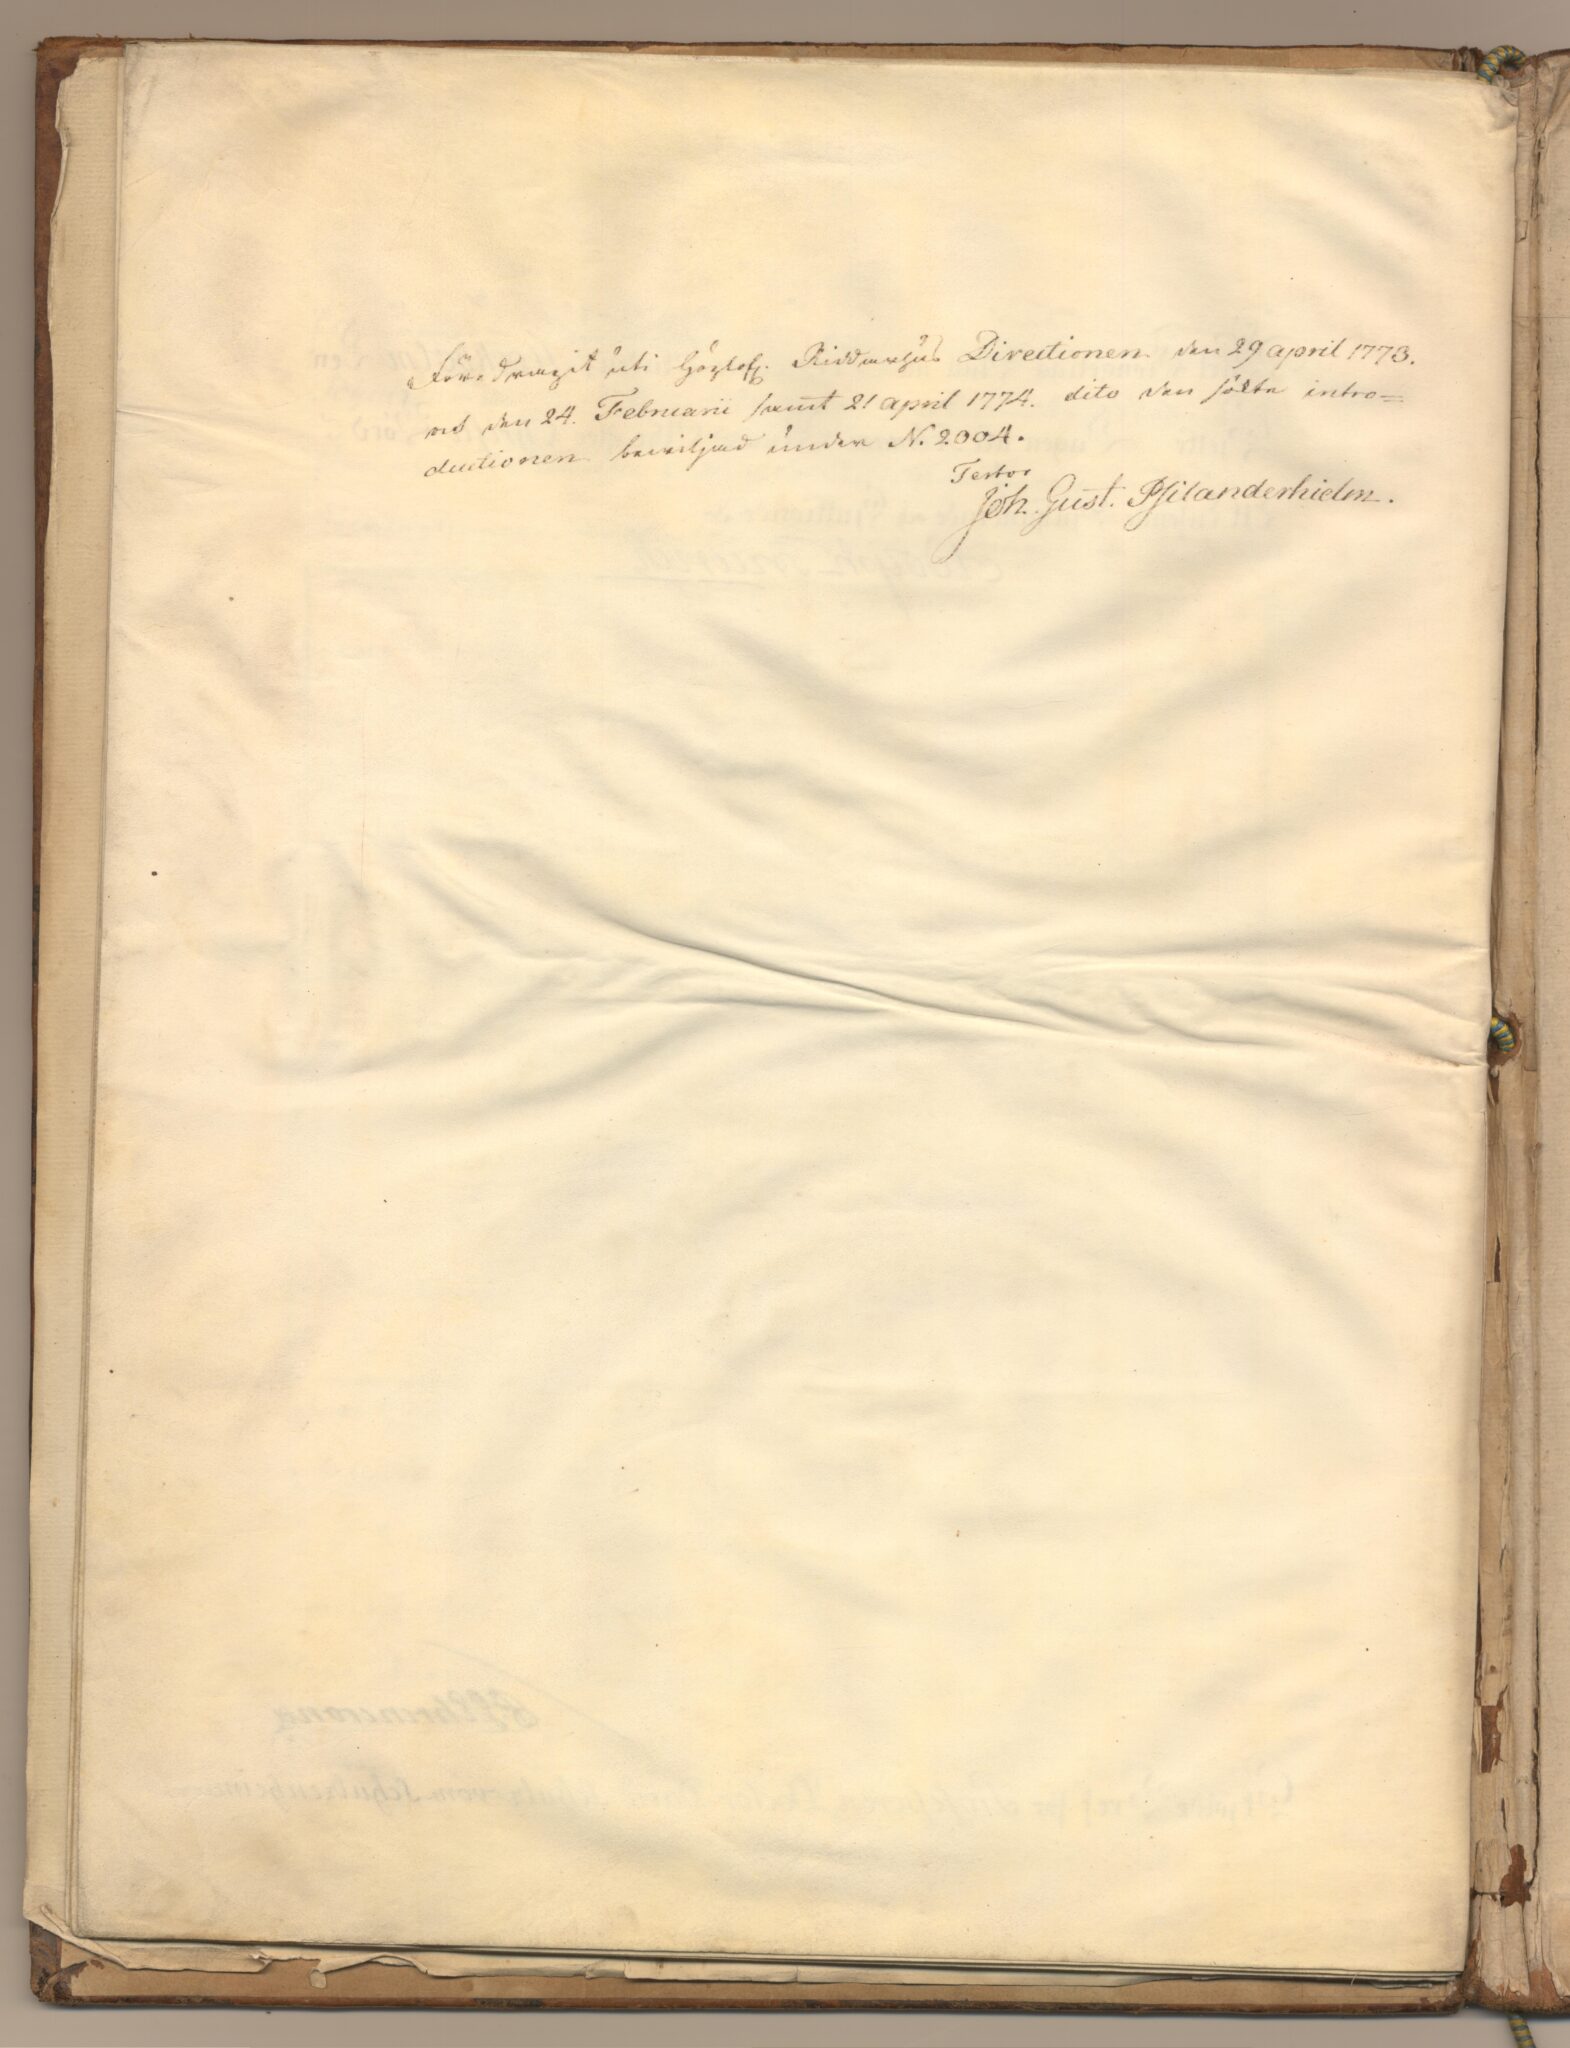 Föredragit uti Höglofl. Riddarhus Directionen den 29 april 1773.
och den 24. Februarii samt 21 april 1774. dito den sökta intro=
ductionen bewiljad under N. 2004.
Testor
Joh. Gust. Psilanderhielm.